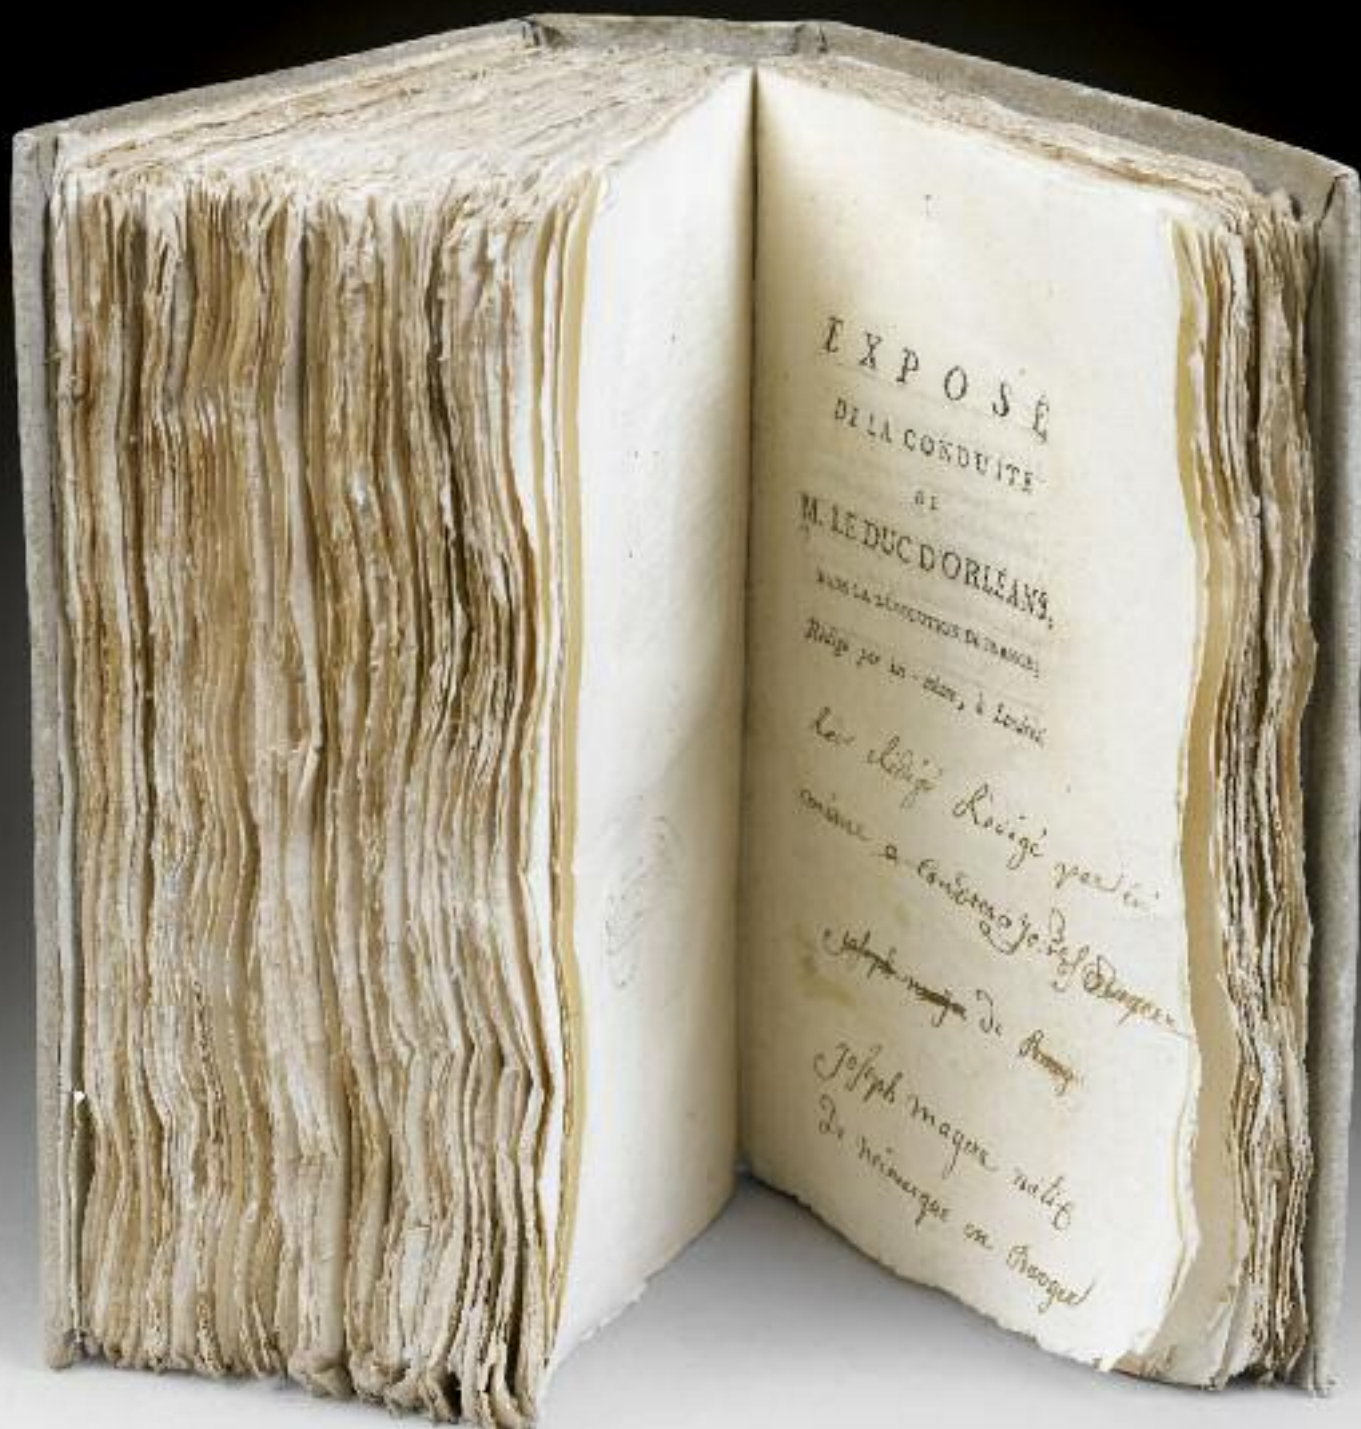 EXPOSÉ
DE LA CONDUITE
DE
M. LE DUC D'ORLÉANS,
DANS LA RÉVOLUTION DE FRANCE;
Rédigé par lui-même, à Londres.
Rédigé par lui
même a Londres Joseph
joseph de
joseph magne natif
De en